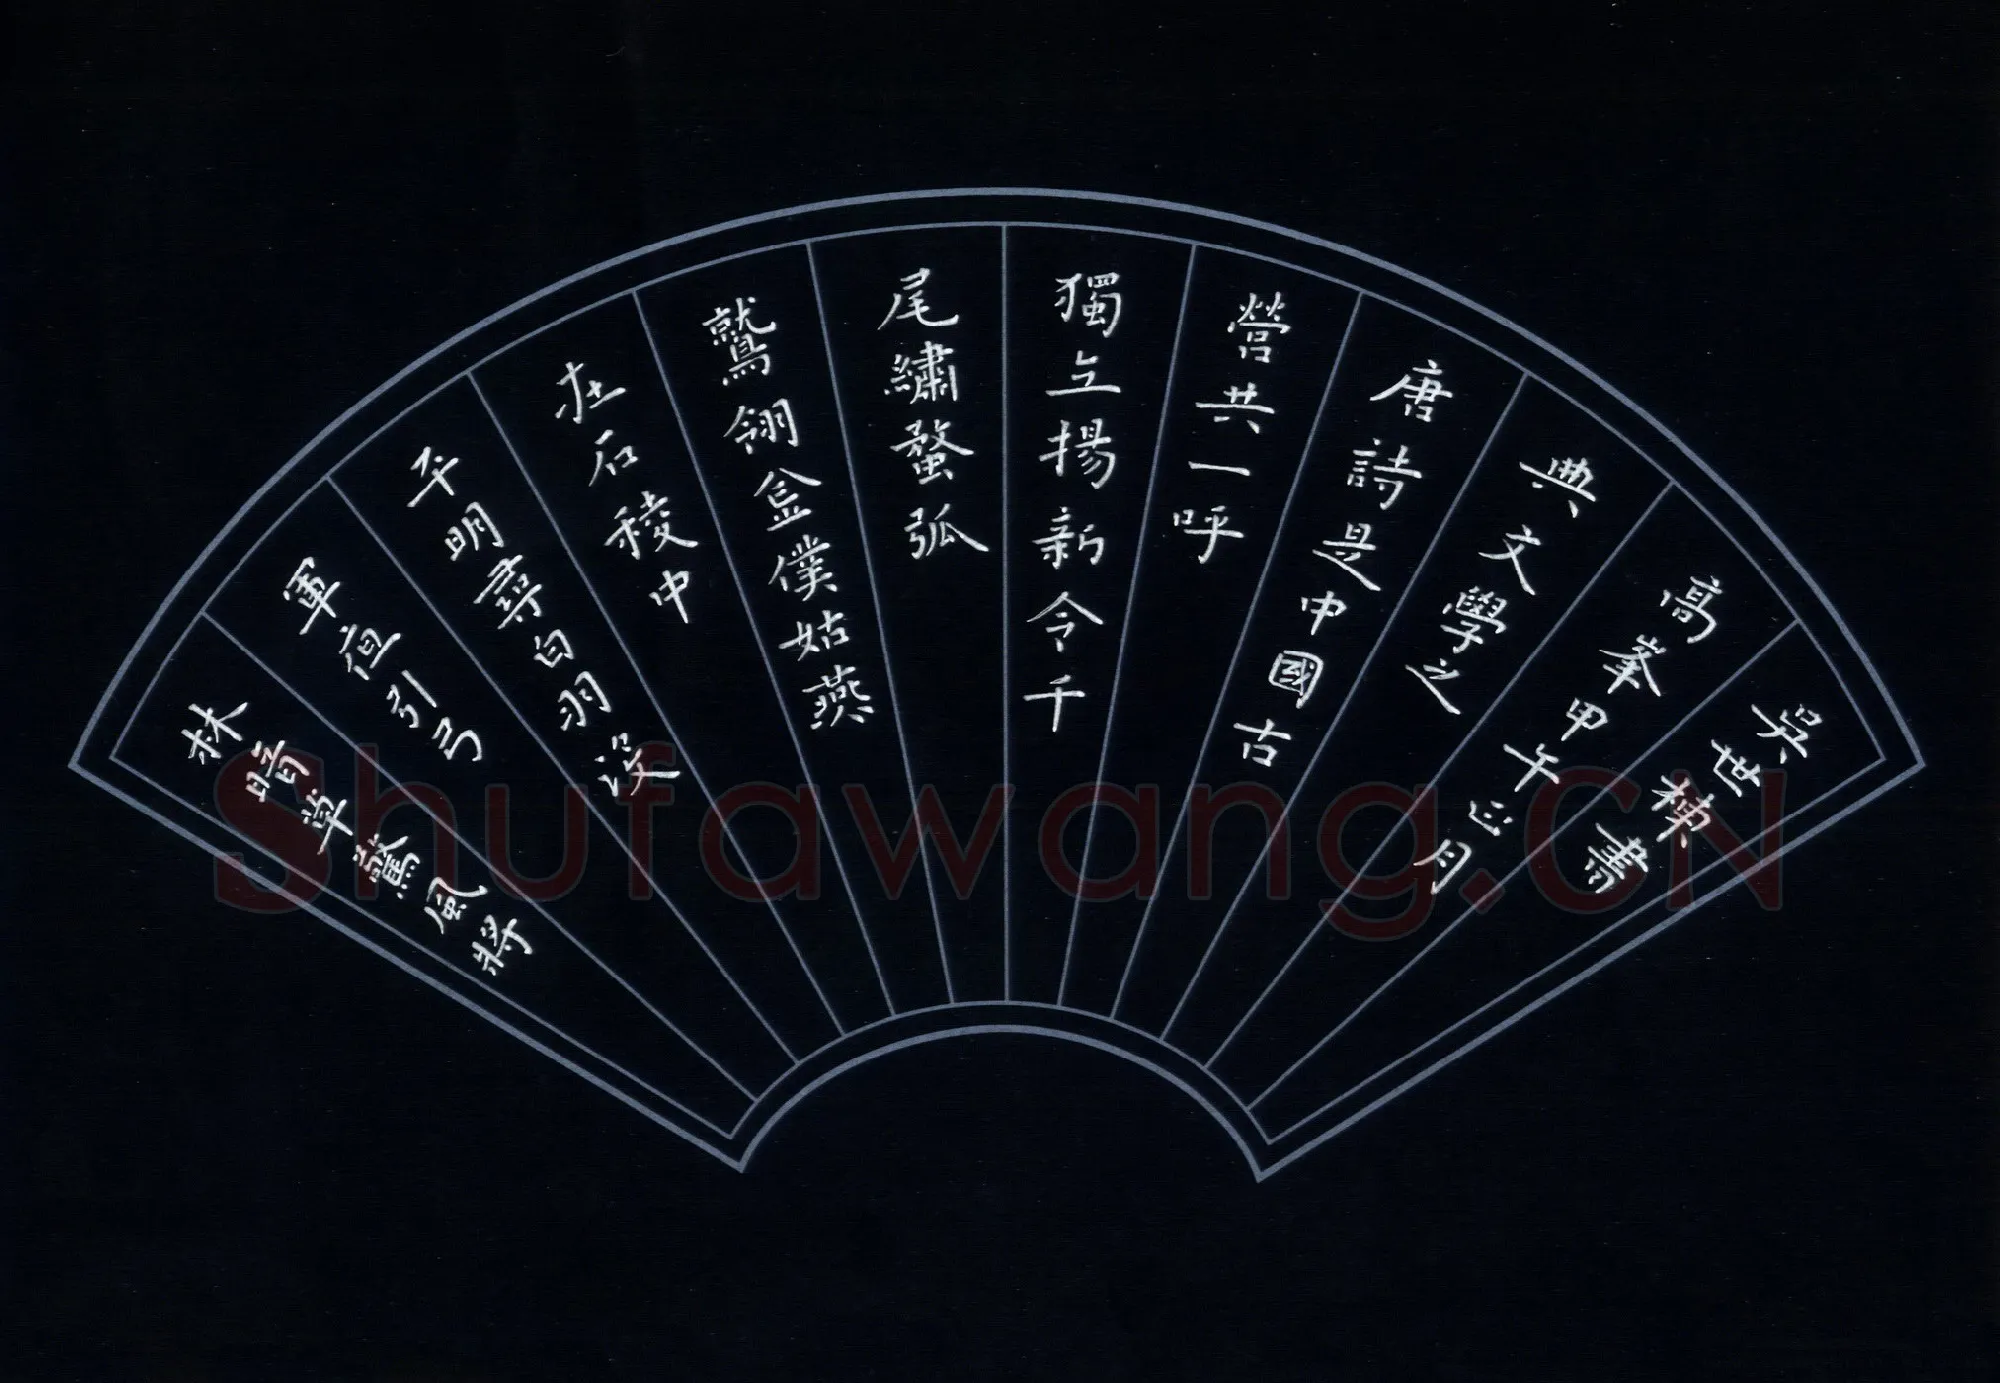 林暗草驚風將
軍亱引弓
平明尋白羽没
在石稜中
鷲翎金僕姑燕
尾繡蝥弧
獨立揚新令千
營共一呼
唐詩是中國古
典文學之
高峯甲午正月
吳世棟書
Shufawang.CN